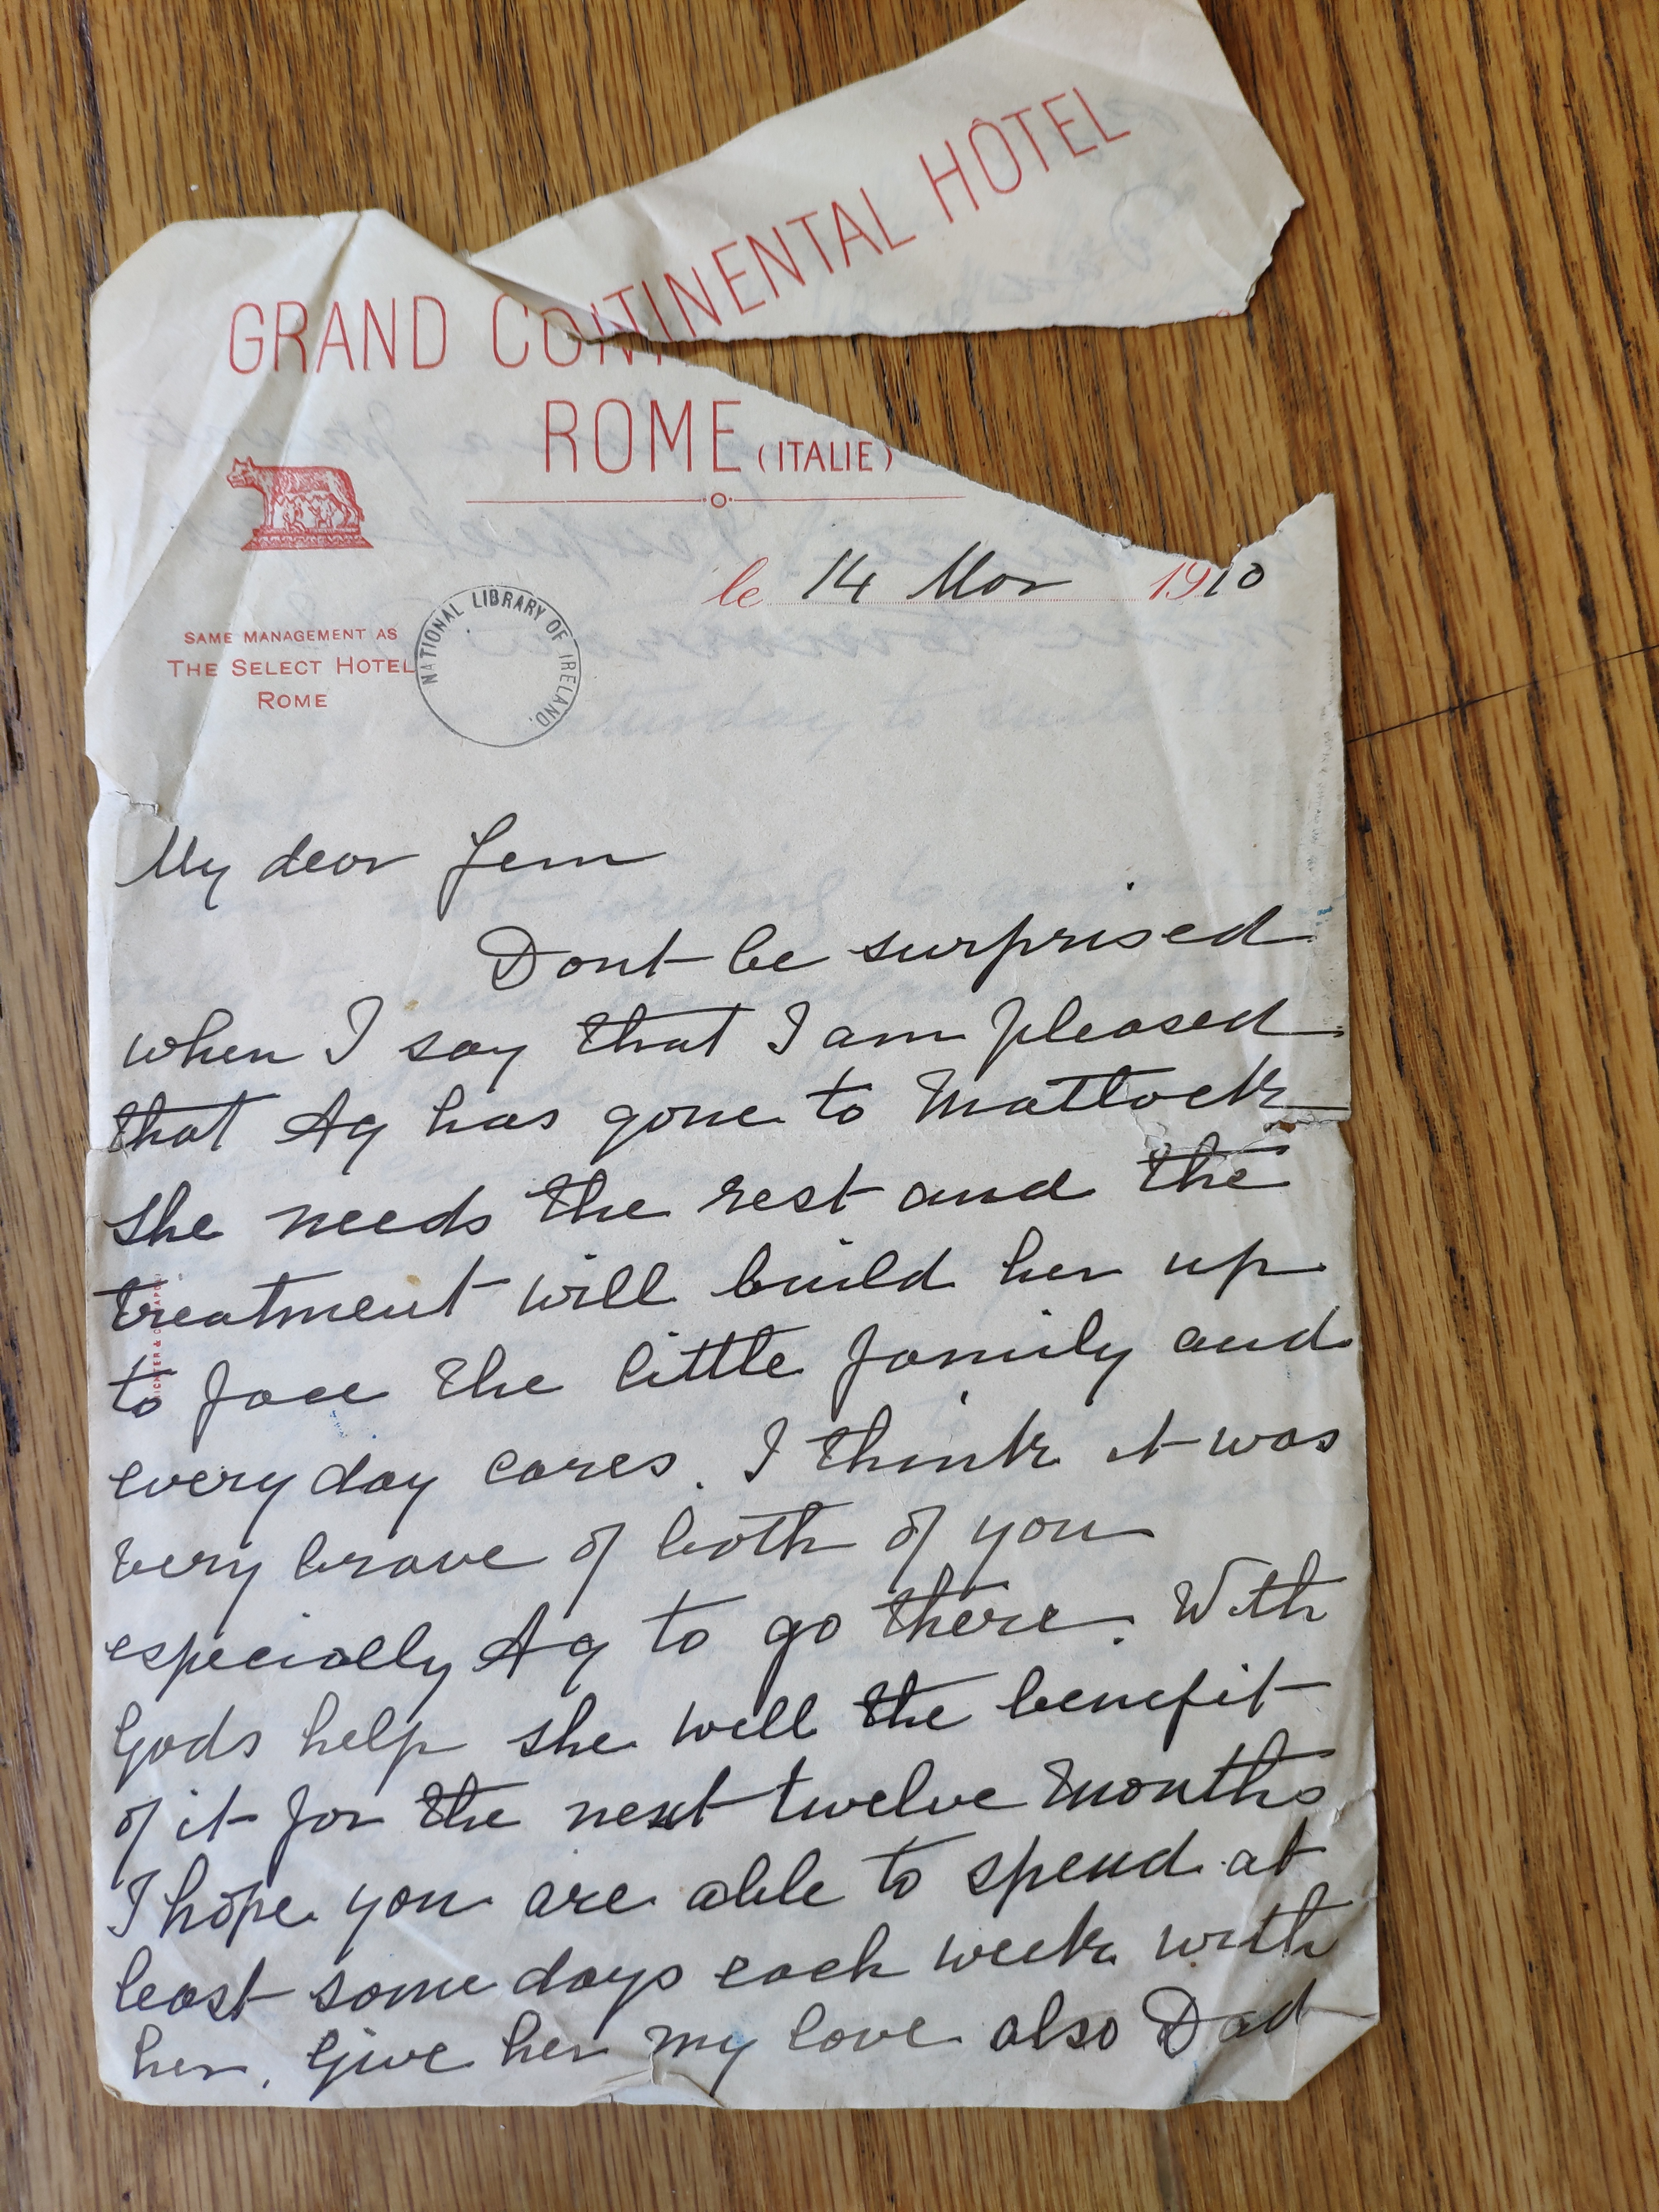 GRAND CONTINENTAL HÔTEL
ROME (ITALIE)
le 14 Mar 1910
SAME MANAGEMENT AS
THE SELECT HOTEL
ROME
NATIONAL LIBRARY OF IRELAND.
My dear Jem
Dont be surprised
when I say that I am pleased
that Ag has gone to Mattock
she needs the rest and the
treatment will build her up
to face the little family and
every day cares. I think it was
very brave of both of you
especially Ag to go there. With
Gods help she well the benefit
of it for the next twelve months
I hope you are able to spend at
least some days each week with
her. Give her my love also Dad